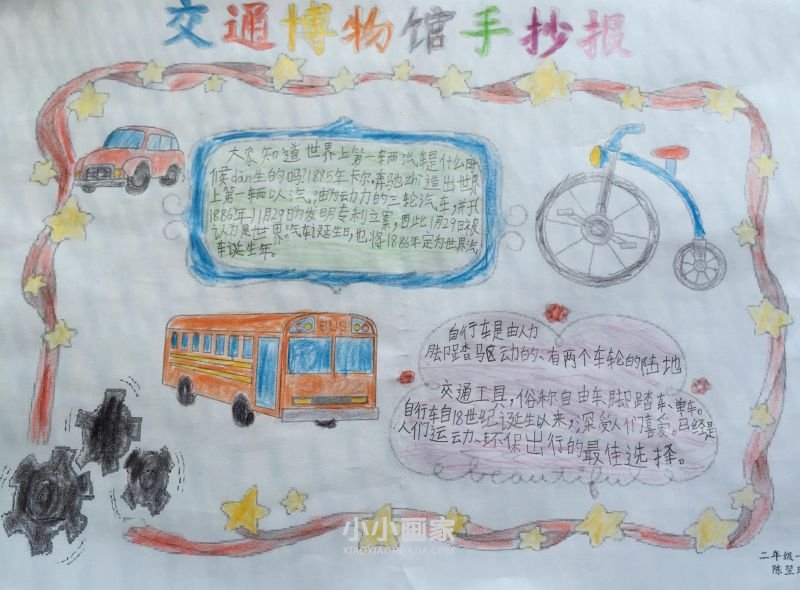 交通博物馆手抄报
大家知道世界上第一车两汽车是什么时
候dàn生的吗?1885年卡尔·奔驰制造出世界
上第一辆以汽油为动力的三轮汽车,并于
1886年1月29日为发明专利立案,因此1月29日被
认为是世界汽车诞生日,也将1886年定为世界汽
车诞生年。
BUS
自行车是由人力
脚踏驱动的、有两个车轮的陆地
交通工具,俗称自由车、脚踏车、单车。
自行车自18世纪诞生以来,深受人们喜爱。已经是
人们运动、环保出行的最佳选择。
beautiful
小小画家
XIAOXIAOHUAJIA.COM
二年级一
陈